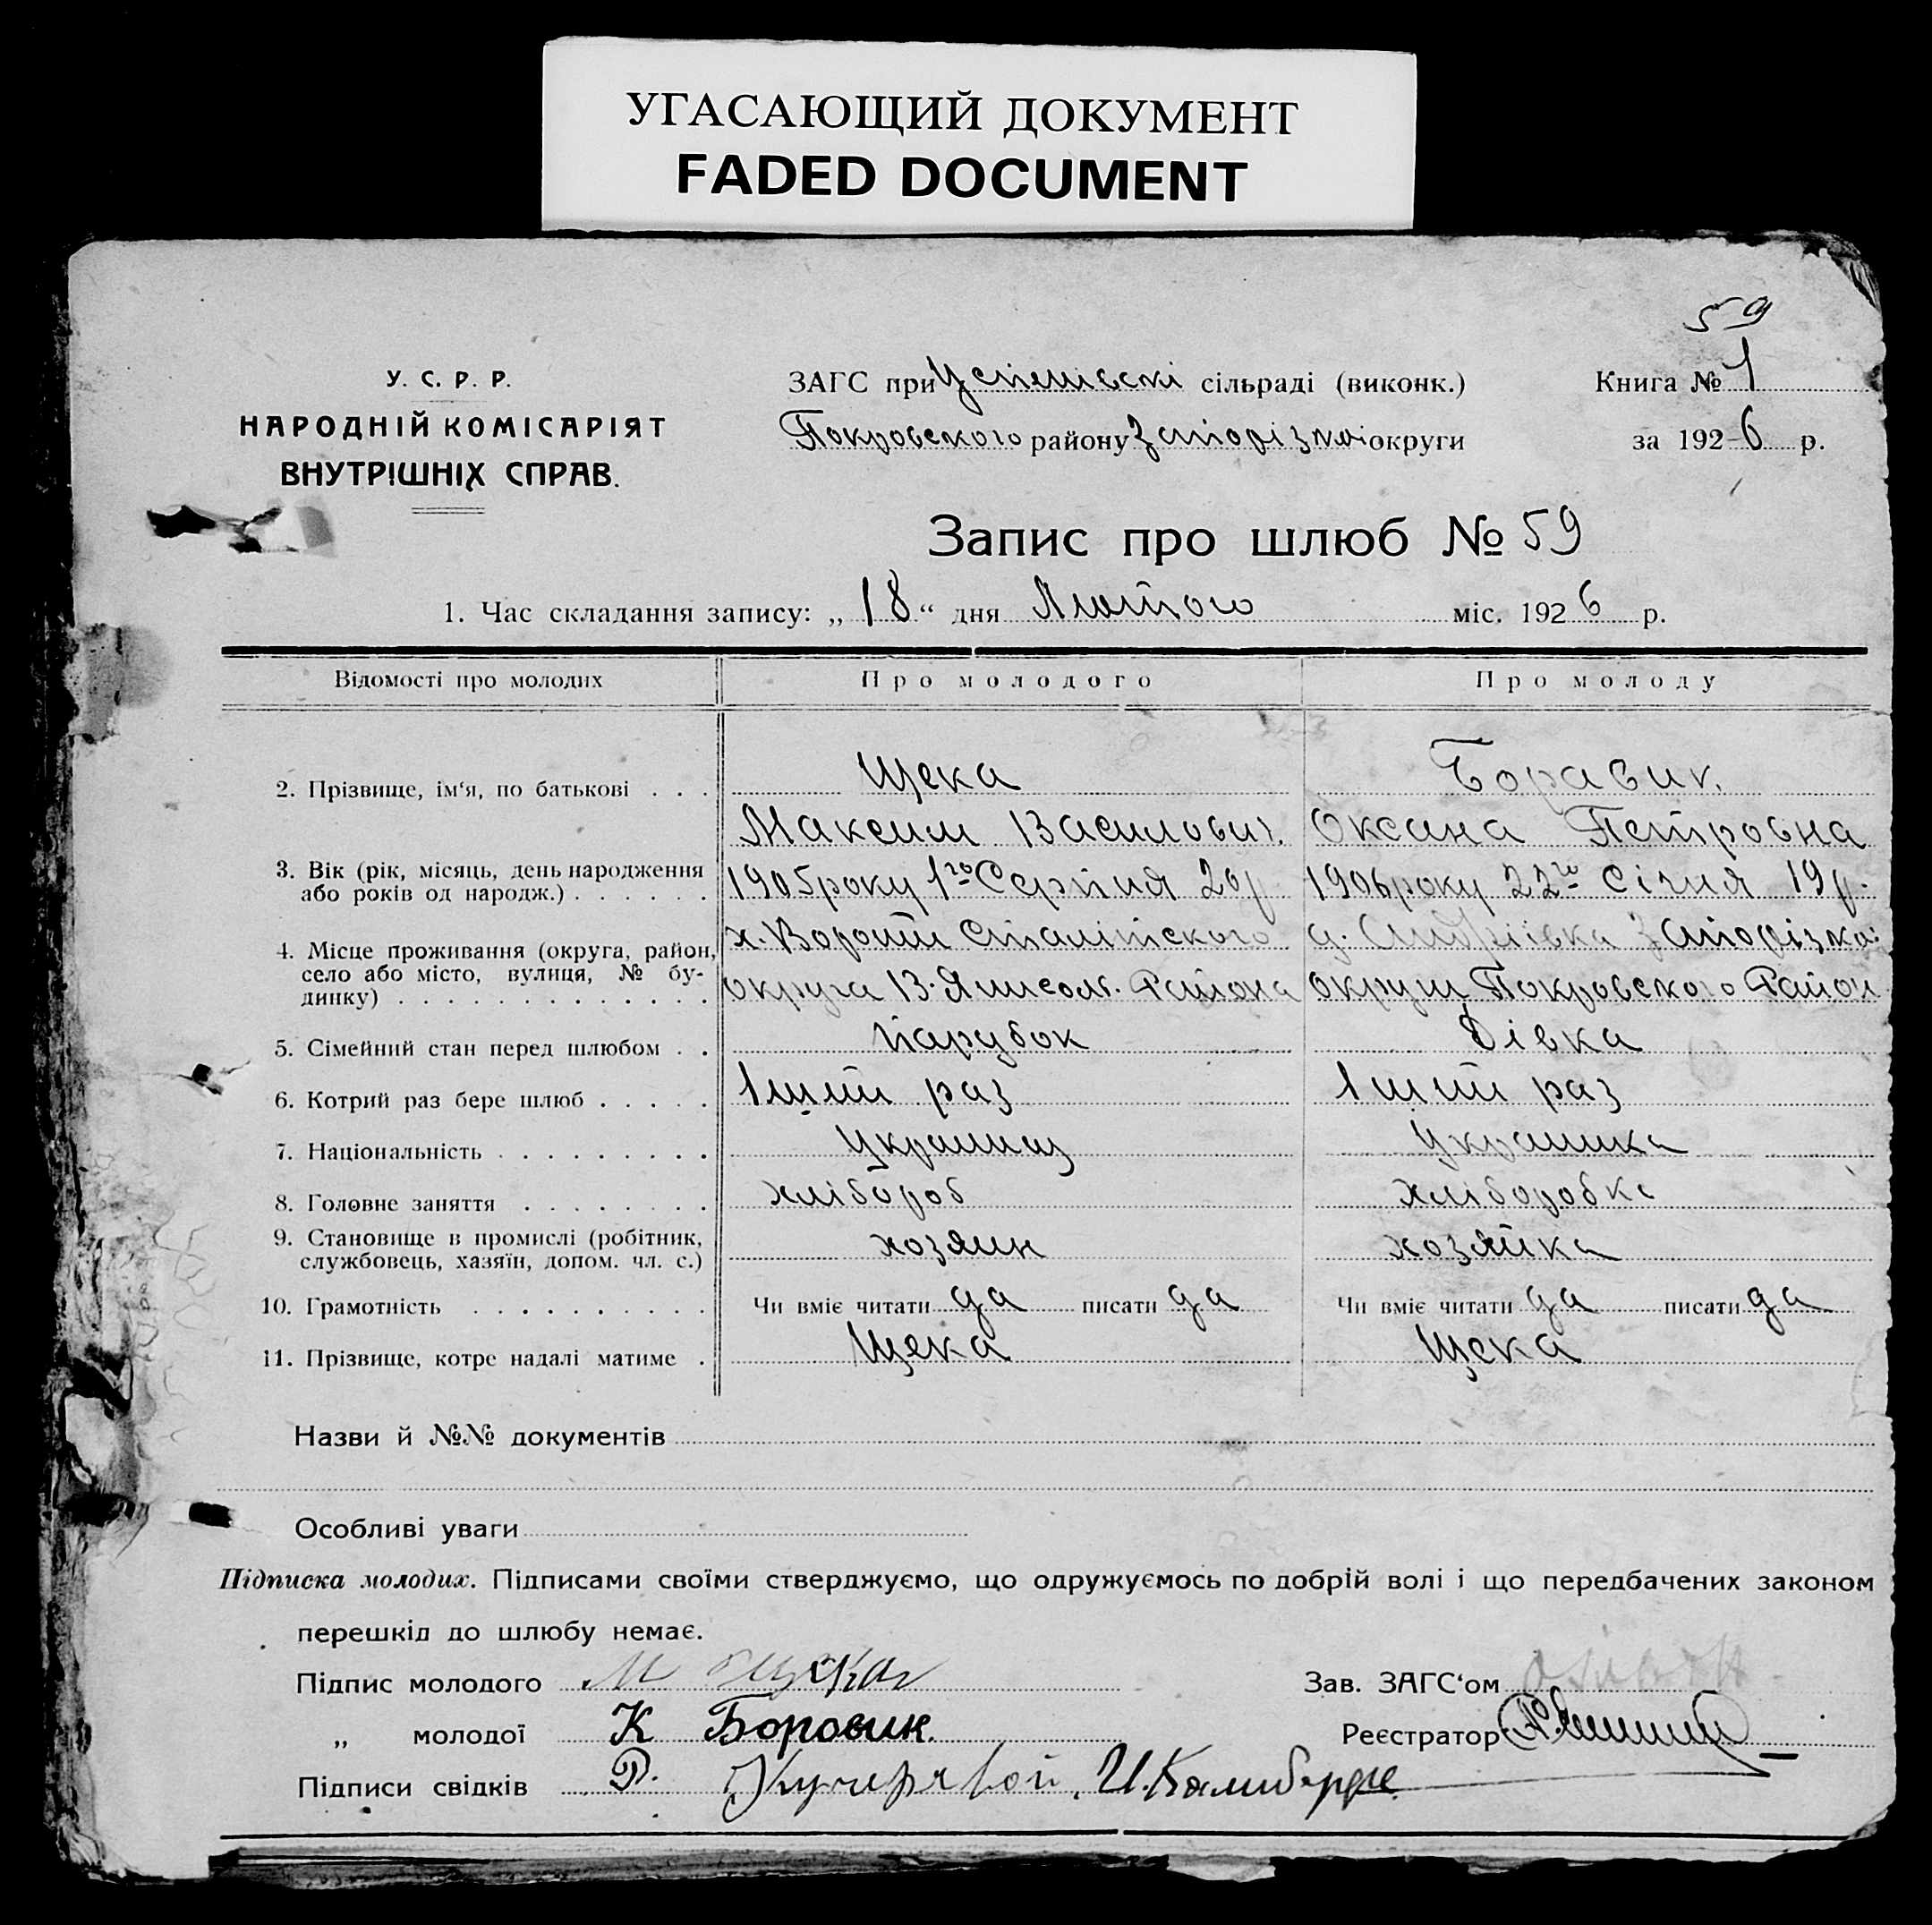 УГАСАЮЩИЙ ДОКУМЕНТ
FADED DOCUMENT
59
У. С. Р. Р.
НАРОДНІЙ КОМІСАРІЯТ
ВНУТРІШНІХ СПРАВ.
ЗАГС при Успенівскі сільраді (виконк.)
Покровского району Запорізкоі округи
Книга № 1
за 1926 р.
Запис про шлюб № 59
1. Час складання запису: „ 18 “ дня Лютого міс. 1926 р.
Відомості про молодих Про молодого Про молоду
2. Прізвище, ім‘я, по батькові . . . Щека Боравик.
Максим Василович. Оксана Петровна
3. Вік (рік, місяць, день народження
або років од народж.) . . . . . . 1905 року 1го Серпня 20 р 1906 року 22го Січня 19 р.
4. Місце проживання (округа, район,
село або місто, вулиця, № бу-
динку) . . . . . . . . . . . . .
х. Сталінского Запорізкоі
округа Района округи Покровского Район
5. Сімейний стан перед шлюбом . . Парубок Дівка
6. Котрий раз бере шлюб . . . . . 1ший раз 1ший раз
7. Національність . . . . . . . . . Украинец Украинка
8. Головне заняття . . . . . . . . хлібороб хліборобка
9. Становище в промислі (робітник,
службовець, хазяїн, допом. чл. с.) хозяин хозяйка
10. Грамотність . . . . . . . . . . Чи вміє читати да писати да Чи вміє читати да писати да
11. Прізвище, котре надалі матиме . Щека Щека
Назви й №№ документів
Особливі уваги
Підписка молодих. Підписами своїми стверджуємо, що одружуємось по добрій волі і що передбачених законом
перешкід до шлюбу немає.
Підпис молодого М Щека Зав. ЗАГС‘ом
„ молодої К Боровик. Реєстратор
Підписи свідків Р. Кучерявой. И.